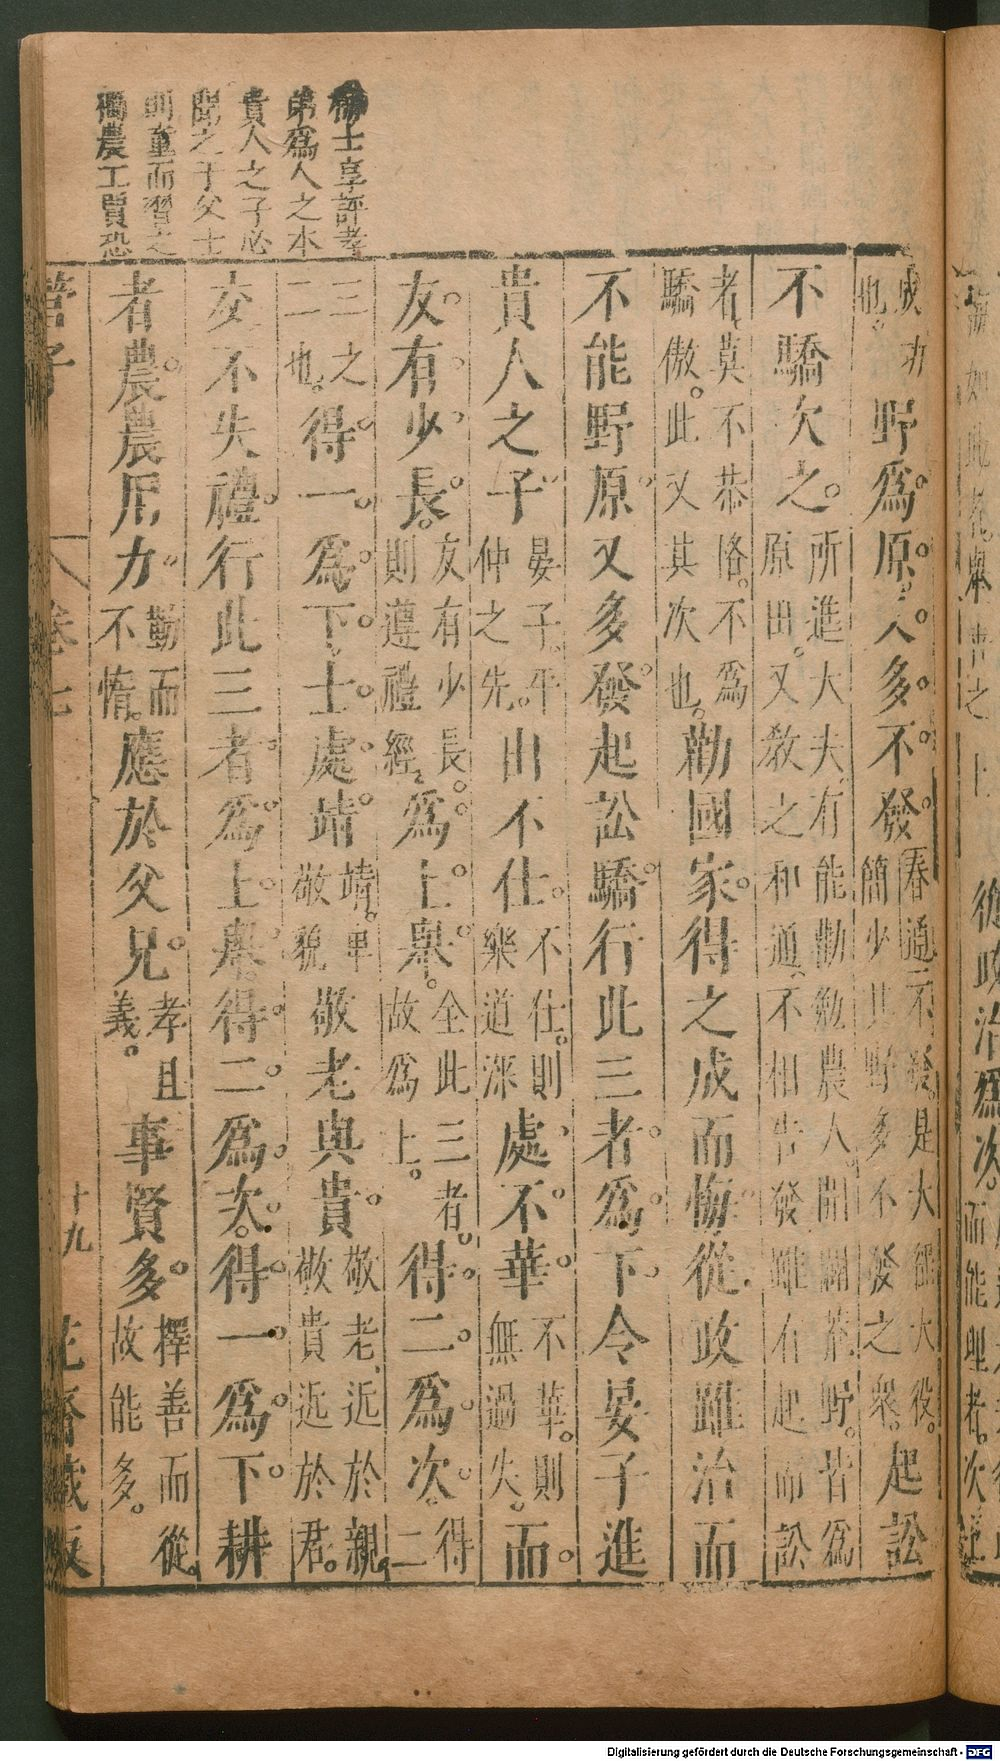 楊士享評孝
弟爲人之本
貴人之子必
聞之于父士
則童而習之
獨農工賈恐
成功
也。野爲原。人多不發。春通不發。是大經大役。
簡少其野多不發之衆。起訟
不驕欠之。所進大夫有能勸勉農人開闢荒野。皆爲
原田。又教之和通不相告發雖有起而訟
者莫不恭恪。不爲
驕傲。此又其次也。勸國家。得之成而悔從政雖治而
不能野原。又多發。起訟驕。行此三者。爲下。令晏子進
貴人之子。晏子。平
仲之先。出不仕。不仕。則
樂道深。處不華。不華。則
無過失。而
友。有少長。友有少長。
則遵禮經。爲上舉。全此三者。
故爲上。得二爲次。得二
三之
二也。得一爲下。士處靖。靖。卑
敬貌敬老與貴。敬老近於親
敬貴近於君。
交不失禮。行此三者爲上舉。得二爲次。得一爲下。耕
者農。農用力。勤而
不惰。應於父兄。孝且
義。事賢多。擇善而從
故能多。
管子 卷七 十九 花齋藏板
從政治爲次。而能理者。次
Digitalisierung gefördert durch die Deutsche Forschungsgemeinschaft - DFG